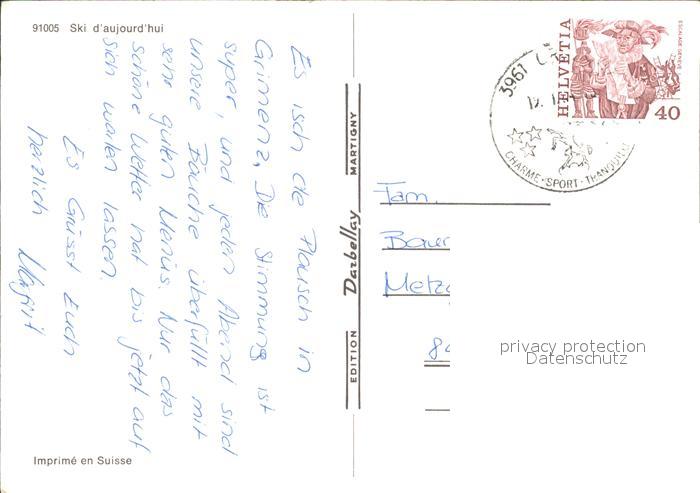 91005 Ski d'aujourd'hui
Es isch de Plausch in
Grimenz. Die Stimmung ist
super, und jeden Abend sind
unsere Bäuche überfüllt mit
sehr guten Menüs. Nur das
schöne Wetter hat bis jetzt auf
sich warten lassen.
Es Grüsst Euch
herzlich Magrit
Imprimé en Suisse
EDITION Darbellay MARTIGNY
HELVETIA
ESCALADE GENÈVE
40
3961
CHARME-SPORT-TRANQUILL
Fam.
Baur
Metzg
privacy protection
Datenschutz